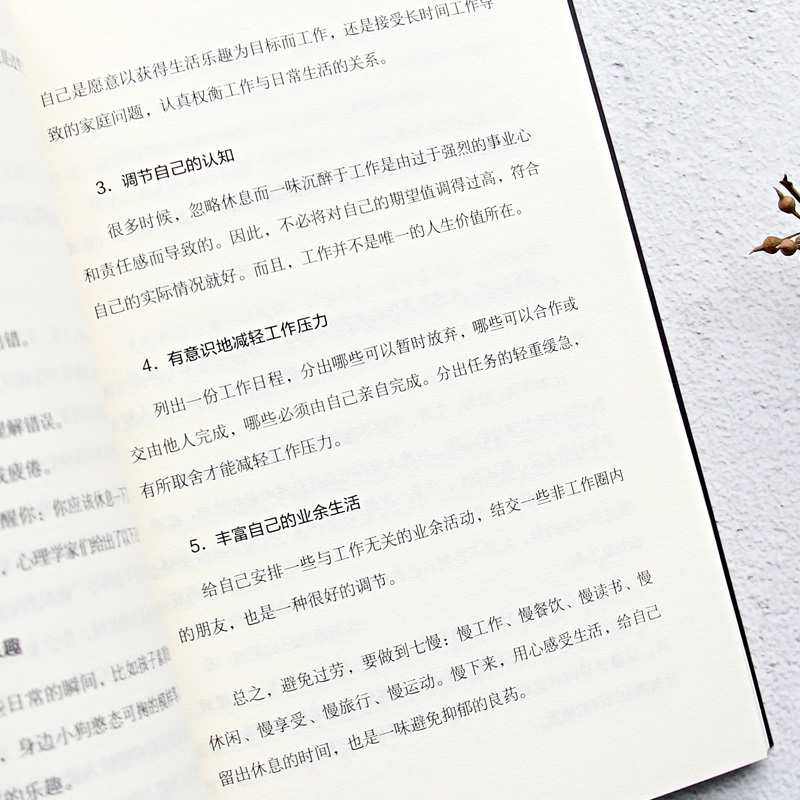 理解错误。
疲倦。
醒你：你应该休息一下
，心理学家们给出了以下
日常的瞬间，比如孩子
，身边小狗憨态可掬的
的乐趣。
自己是愿意以获得生活乐趣为目标而工作，还是接受长时间工作导
致的家庭问题，认真权衡工作与日常生活的关系。
3．调节自己的认知
很多时候，忽略休息而一味沉醉于工作是由过于强烈的事业心
和责任感而导致的。因此，不必将对自己的期望值调得过高，符合
自己的实际情况就好。而且，工作并不是唯一的人生价值所在。
4．有意识地减轻工作压力
列出一份工作日程，分出哪些可以暂时放弃，哪些可以合作或
交由他人完成，哪些必须由自己亲自完成。分出任务的轻重缓急，
有所取舍才能减轻工作压力。
5．丰富自己的业余生活
给自己安排一些与工作无关的业余活动，结交一些非工作圈内
的朋友，也是一种很好的调节。
总之，避免过劳，要做到七慢：慢工作、慢餐饮、慢读书、慢
休闲、慢享受、慢旅行、慢运动。慢下来，用心感受生活，给自己
留出休息的时间，也是一味避免抑郁的良药。